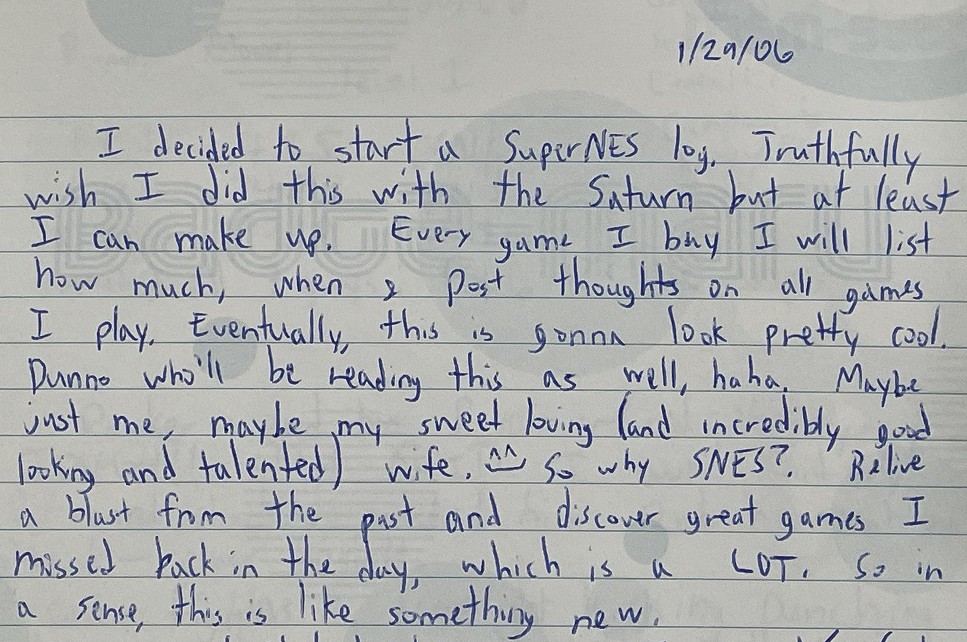 1/29/06
I decided to start a SuperNES log. Truthfully
wish I did this with the Saturn but at least
I can make up. Every game I buy I will list
how much, when & post thoughts on all games
I play. Eventually, this is gonna look pretty cool.
Dunno who'll be reading this as well, haha. Maybe
just me, maybe my sweet loving (and incredibly good
looking and talented) wife. ^^ So why SNES?. Relive
a blast from the past and discover great games I
missed back in the day, which is a LOT. So in
a sense, this is like something new.